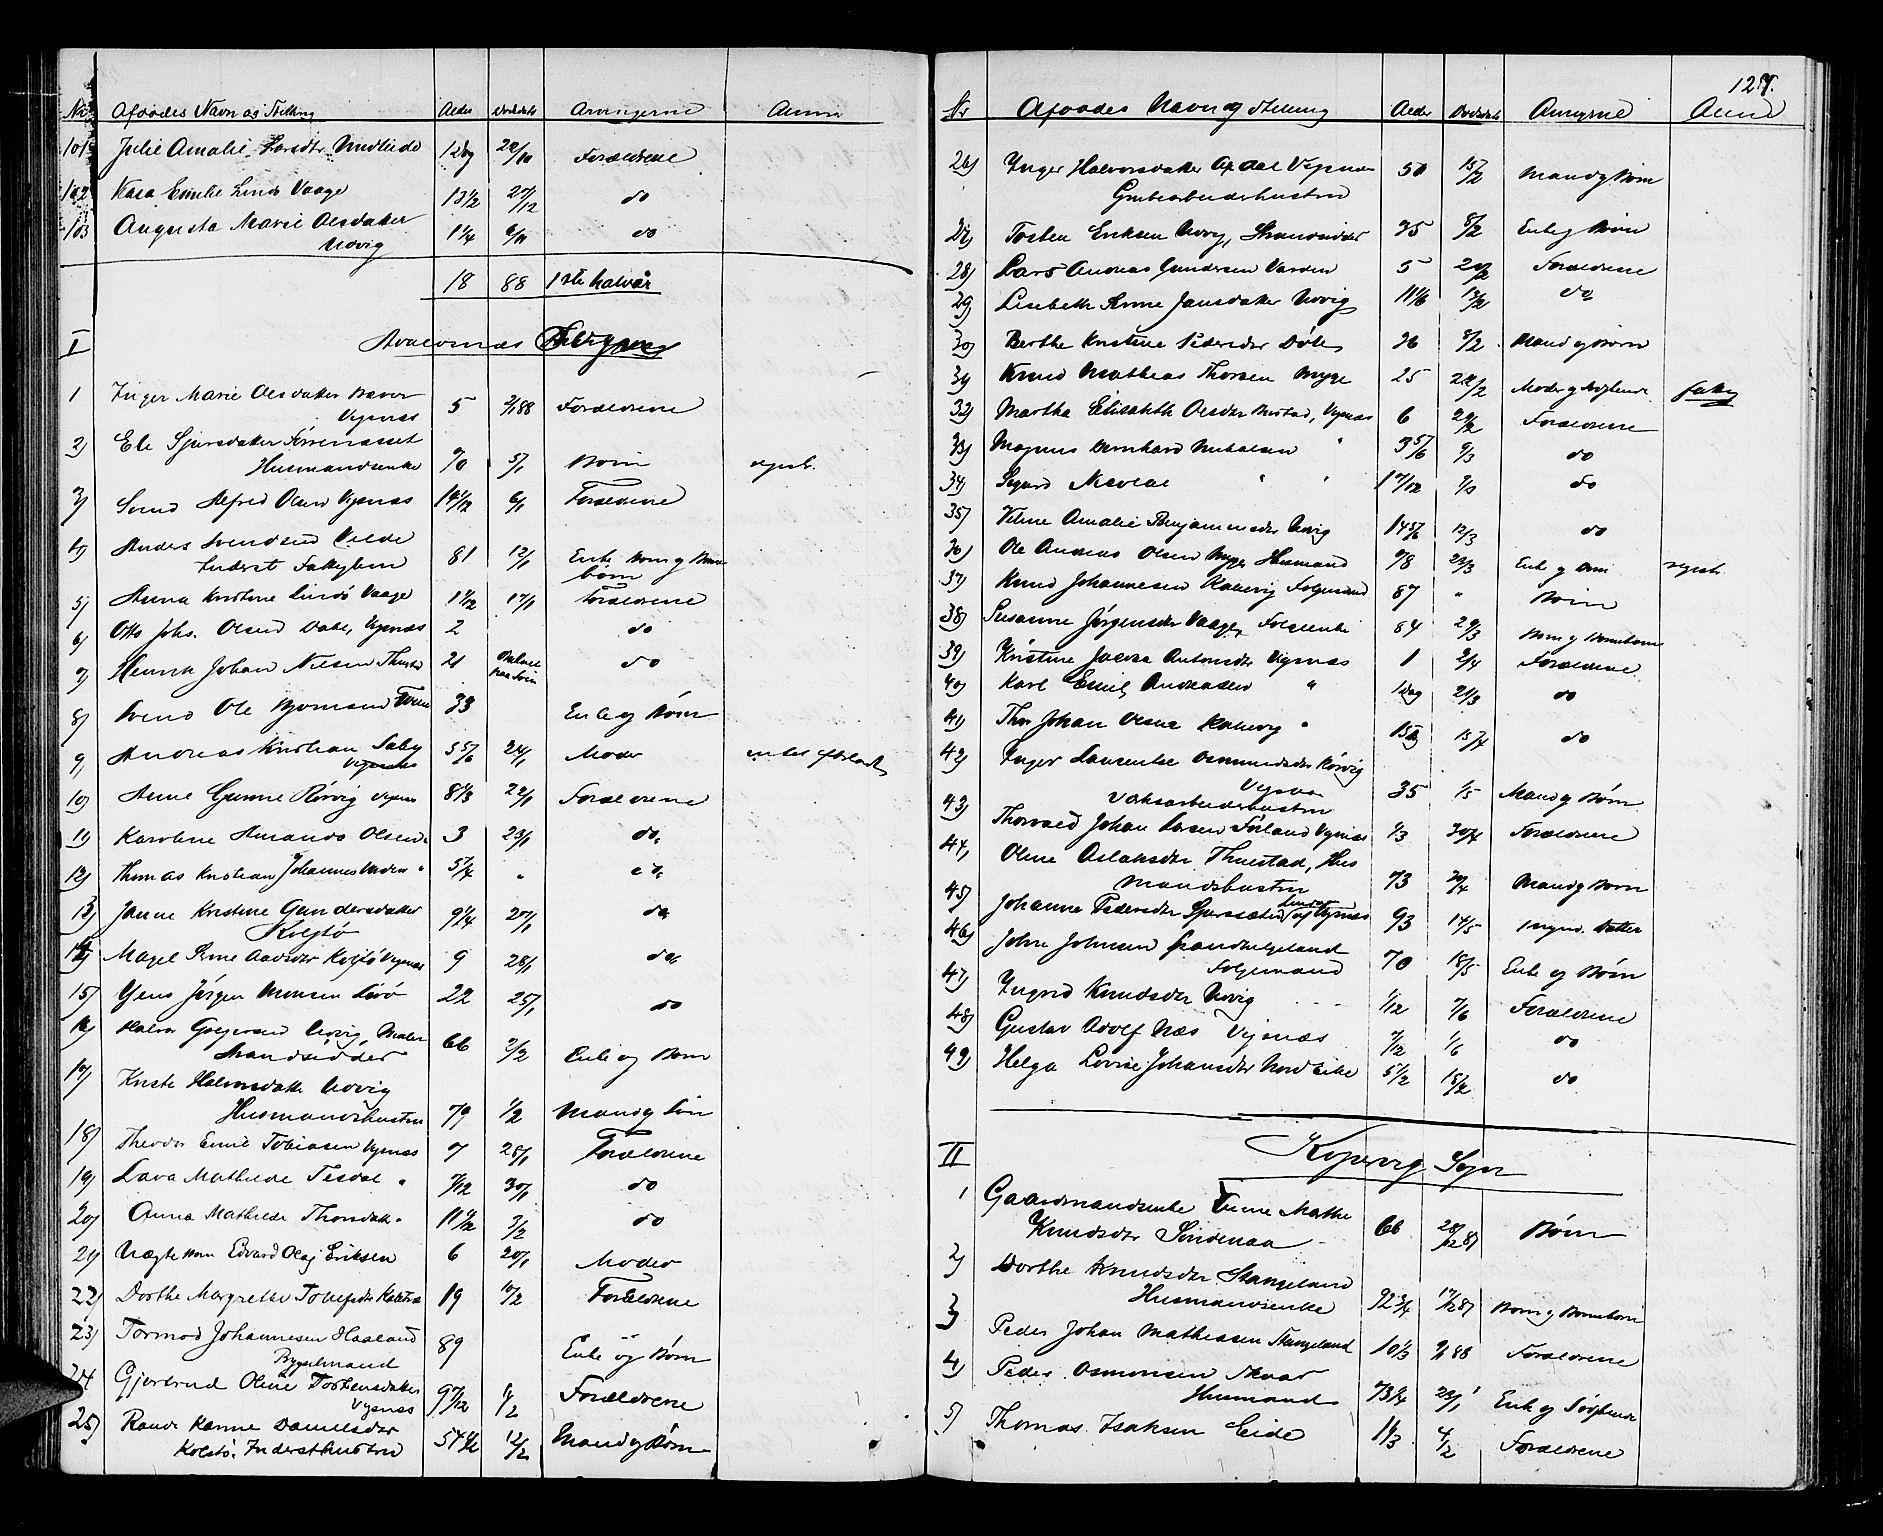 No Afdødes Navn og Stilling Alder Dødsdato Arvingerne Anm
101 Julie Amalie Larsdtr Undlide 1 dag 22/10 Forældrene
102 Kasa Emelie Lindø Vaage 13 1/2 27/12 do
103 Augusta Marie Olsdatter 1 1/4 6/11 do
Udvig
18 88 1ste halvår
I Avaldsnæs
1 Inger Marie Olsdatter
Vigsnæs 5 2/1 88 Forældrene
2) Eli Sjursdatter Førrenæsset
Husmandsenke 70 5/1 Børn regist.
3) Svend Alfred Olsen Vigsnæs 1 4/12 6/1 Forældrene
4) Anders Svendsen Velde
Inderst Fattiglem 81 12/1 Enke Børn og Børne
børn
5) Anna Kristine Lindø Vaage 1 1/12 17/1 Forældrene
6) Otto Johs. Olsen Dale, Vigsnæs 2 do
7) Henrik Johan Nilsen 21 do
8) Svend Ole Bjørnsen 33 Enke og Børn
9) Andreas Kristian Saby
Vigsnæs 3 5/6 24/1 Moder intet efterladt
10) Anne Gurine Rørvig Vigsnæs 8 1/3 22/1 Forældrene
11) Karoline Amanda Olsen 3 23/1 do
12) Thomas Kristian Johannes Varden " 5 1/4 " do
13) Janne Kristine Gundersdatter 9 1/4 27/1 do
Kolstø
14) Magel Serine Aadsdtr Kolstø Vigsnæs 9 28/1 do
15) Jens Jørgen Monsen 22 25/1 do
16) Halvor Udvig, Maler
Strandsidder 66 2/2 Enke og Børn
17) Kirste Halvorsdatter Udvig
Husmandshustru 79 1/2 Mand og Søn
18) Theodor Emil Tobiasen Vigsnæs 7 28/1 Forældrene
19) Lava Mathilde Tisdal " 7/12 30/1 do
20) Anna Mathilde Thorsdatter " 3/2 do
21) Uægte Barn Edvard Olaj Eriksen 6 20/1 Moder
22) Dorthe Margrethe 19 10/2 Forældrene
23) Tormod Johannesen Haaland
89 Enke og Børn
24 Gjertrud Oline Torbensdatter
Vigsnæs 9 7/12 1/2 Forældrene
25) Rande Hanne Danielsdtr
Kolstø, Indersthustru 54 1/2 12/2 Mand og Børn
127.
Nr Afdødes Navn og Stilling Alder Dødsdato Arvingerne Anm
26) Inger Halvorsdatter Vigsnæs 50 15/2 Mand og Børn
Grubearbeiderhustru
27) Torben Eriksen Udvig, Strandsidder 75 8/2 Enke og Børn
28) Lars Andreas Gundersen Varden 5 20/2 Forældrene
29) Lisebeth Serine Jansdatter Udvig do
30) Berthe Kristine Pedersdtr Døle 36 9/2 Mand og Børn
31) Knud Mathias Thorsen Myge 25 22/2 Moder og Sødskende
32) Martha Elisabeth Olsdtr Vigsnæs 6 22/2 Forældrene
33) Magnus Bernhard Mikalsen " 3 5/6 9/3 do
34) Sigurd Nicolai " " 1 7/12 9/3 do
35) Veline Amalie Benjaminsdtr Udvig 14 5/6 12/3 do
36) Ole Andreas Olsen Myge Husmand 78 22/3 Enke og Børn regist.
37) Knud Johannesen Kallevig Folgemand 87 " Børn
38) Susanne Jørgensdtr Vaage, Folgeenke 84 29/3 Børn og Børnebørn
39) Kristine Jacoba Antonsdtr Vigsnæs 1 2/4 Forældrene
40) Karl Emil Andreasen " 1 dag 21/3 do
41) Thor Johan Olsen Kallevig " 15/4 do
42) Inger Laurentse Osmundsdtr Rørvig
Vigsnæs
Værksarbeiderhustru 35 1/5 Mand og Børn
43) Thorvald Johan Larsen Førland Vigsnæs 1/3 30/4 Forældrene
44) Oline Aslaksdtr Thuestad, Hus
mandshustru 73 20/4 Mand og Børn
45) Johanne Pedersdtr Vigsnæs 93 14/5 Datter
46) John Johnsen Sandhelgeland
Folgemand 70 18/5 Enke og Børn
47) Ingrid Knudsdtr Udvig 1/12 7/6 Forældrene
48) Gustav Adolf Næs Vigsnæs 7/12 1/6 do
49) Helga Lovise Johansdtr Nord Eike 5 1/2 do
II Kopervig Sogn
1 Gaardmandsenke Anne Marthe
Knudsdtr Søndenaa 66 28/12 87 Børn
2) Dorthe Knudsdtr Stangeland
Husmandsenke 92 3/4 17/12 87 Børn og Børnebørn
3) Peder Johan Mathiassen Stangeland 10 1/3 88 Forældrene
4) Peder Osmonsen Skaar
Husmand 73 3/4 22/1 Enke og Sødskende
5) Thomas Isaksen Eide 1 1/3 4/2 Forældrene